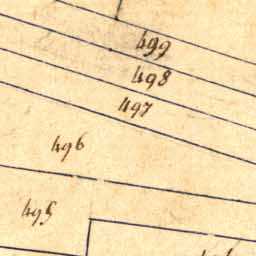 499
498
497
496
495